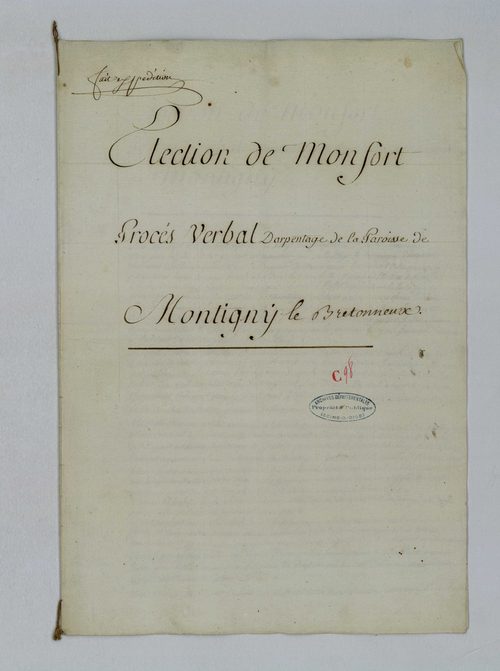 fait expédition
Election de Monfort
Procés Verbal Darpentage de la Paroisse de
Montigny le Bretonneux.
C. 98
ARCHIVES DÉPARTEMENTALES
Propriété Publique
SEINE-&-OISE